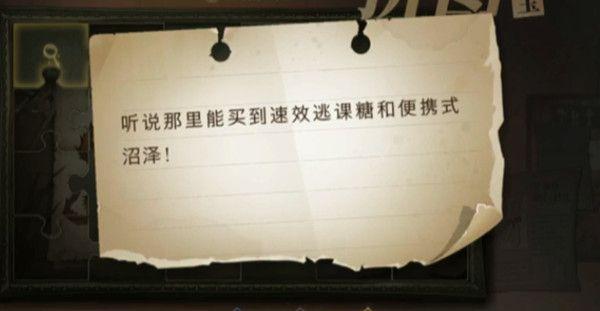 听说那里能买到速效逃课糖和便携式
沼泽!